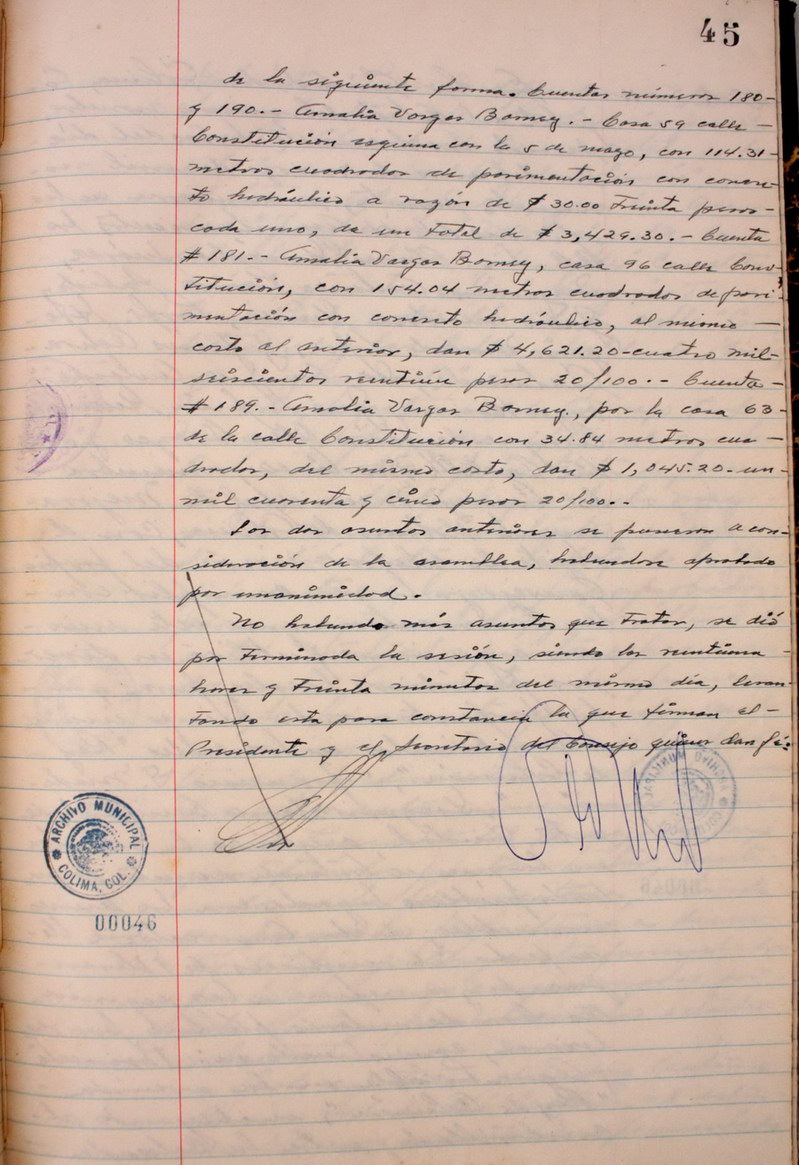 45
de la siguiente forma. Cuentas números 180-
y 190.- Amalia Vargas Barney.- Casa 59 calle -
Constitución esquina con la 5 de mayo, con 114.31-
metros cuadrados de pavimentación con concre-
to hidráulico a razón de $ 30.00 Treinta pesos-
cada uno, da un total de $ 3,429.30.- Cuenta
# 181.- Amalia Vargas Barney, casa 96 calle Cons-
titución, con 154.04 metros cuadrados de pavi-
mentación con concreto hidráulico, al mismo -
costo al anterior, dan $ 4,621.20-cuatro mil-
seiscientos veintiún pesos 20/100.- Cuenta-
# 189.- Amalia Vargas Barney., por la casa 63-
de la calle Constitución con 34.84 metros cua-
drados, del mismo costo, dan $ 1,045.20.-un-
mil cuarenta y cinco pesos 20/100.-
Los dos asuntos anteriores se pusieron a con-
sideración de la asamblea, habiendose aprobado
por unanimidad.
No habiendo más asuntos que tratar, se dió
por terminada la sesión, siendo las veintiuna -
horas y treinta minutos del mismo día, levan-
tando esta para constancia la que firman el-
Presidente y el Secretario del Consejo quienes dan fé.
ARCHIVO MUNICIPAL
COLIMA, COL.
00046